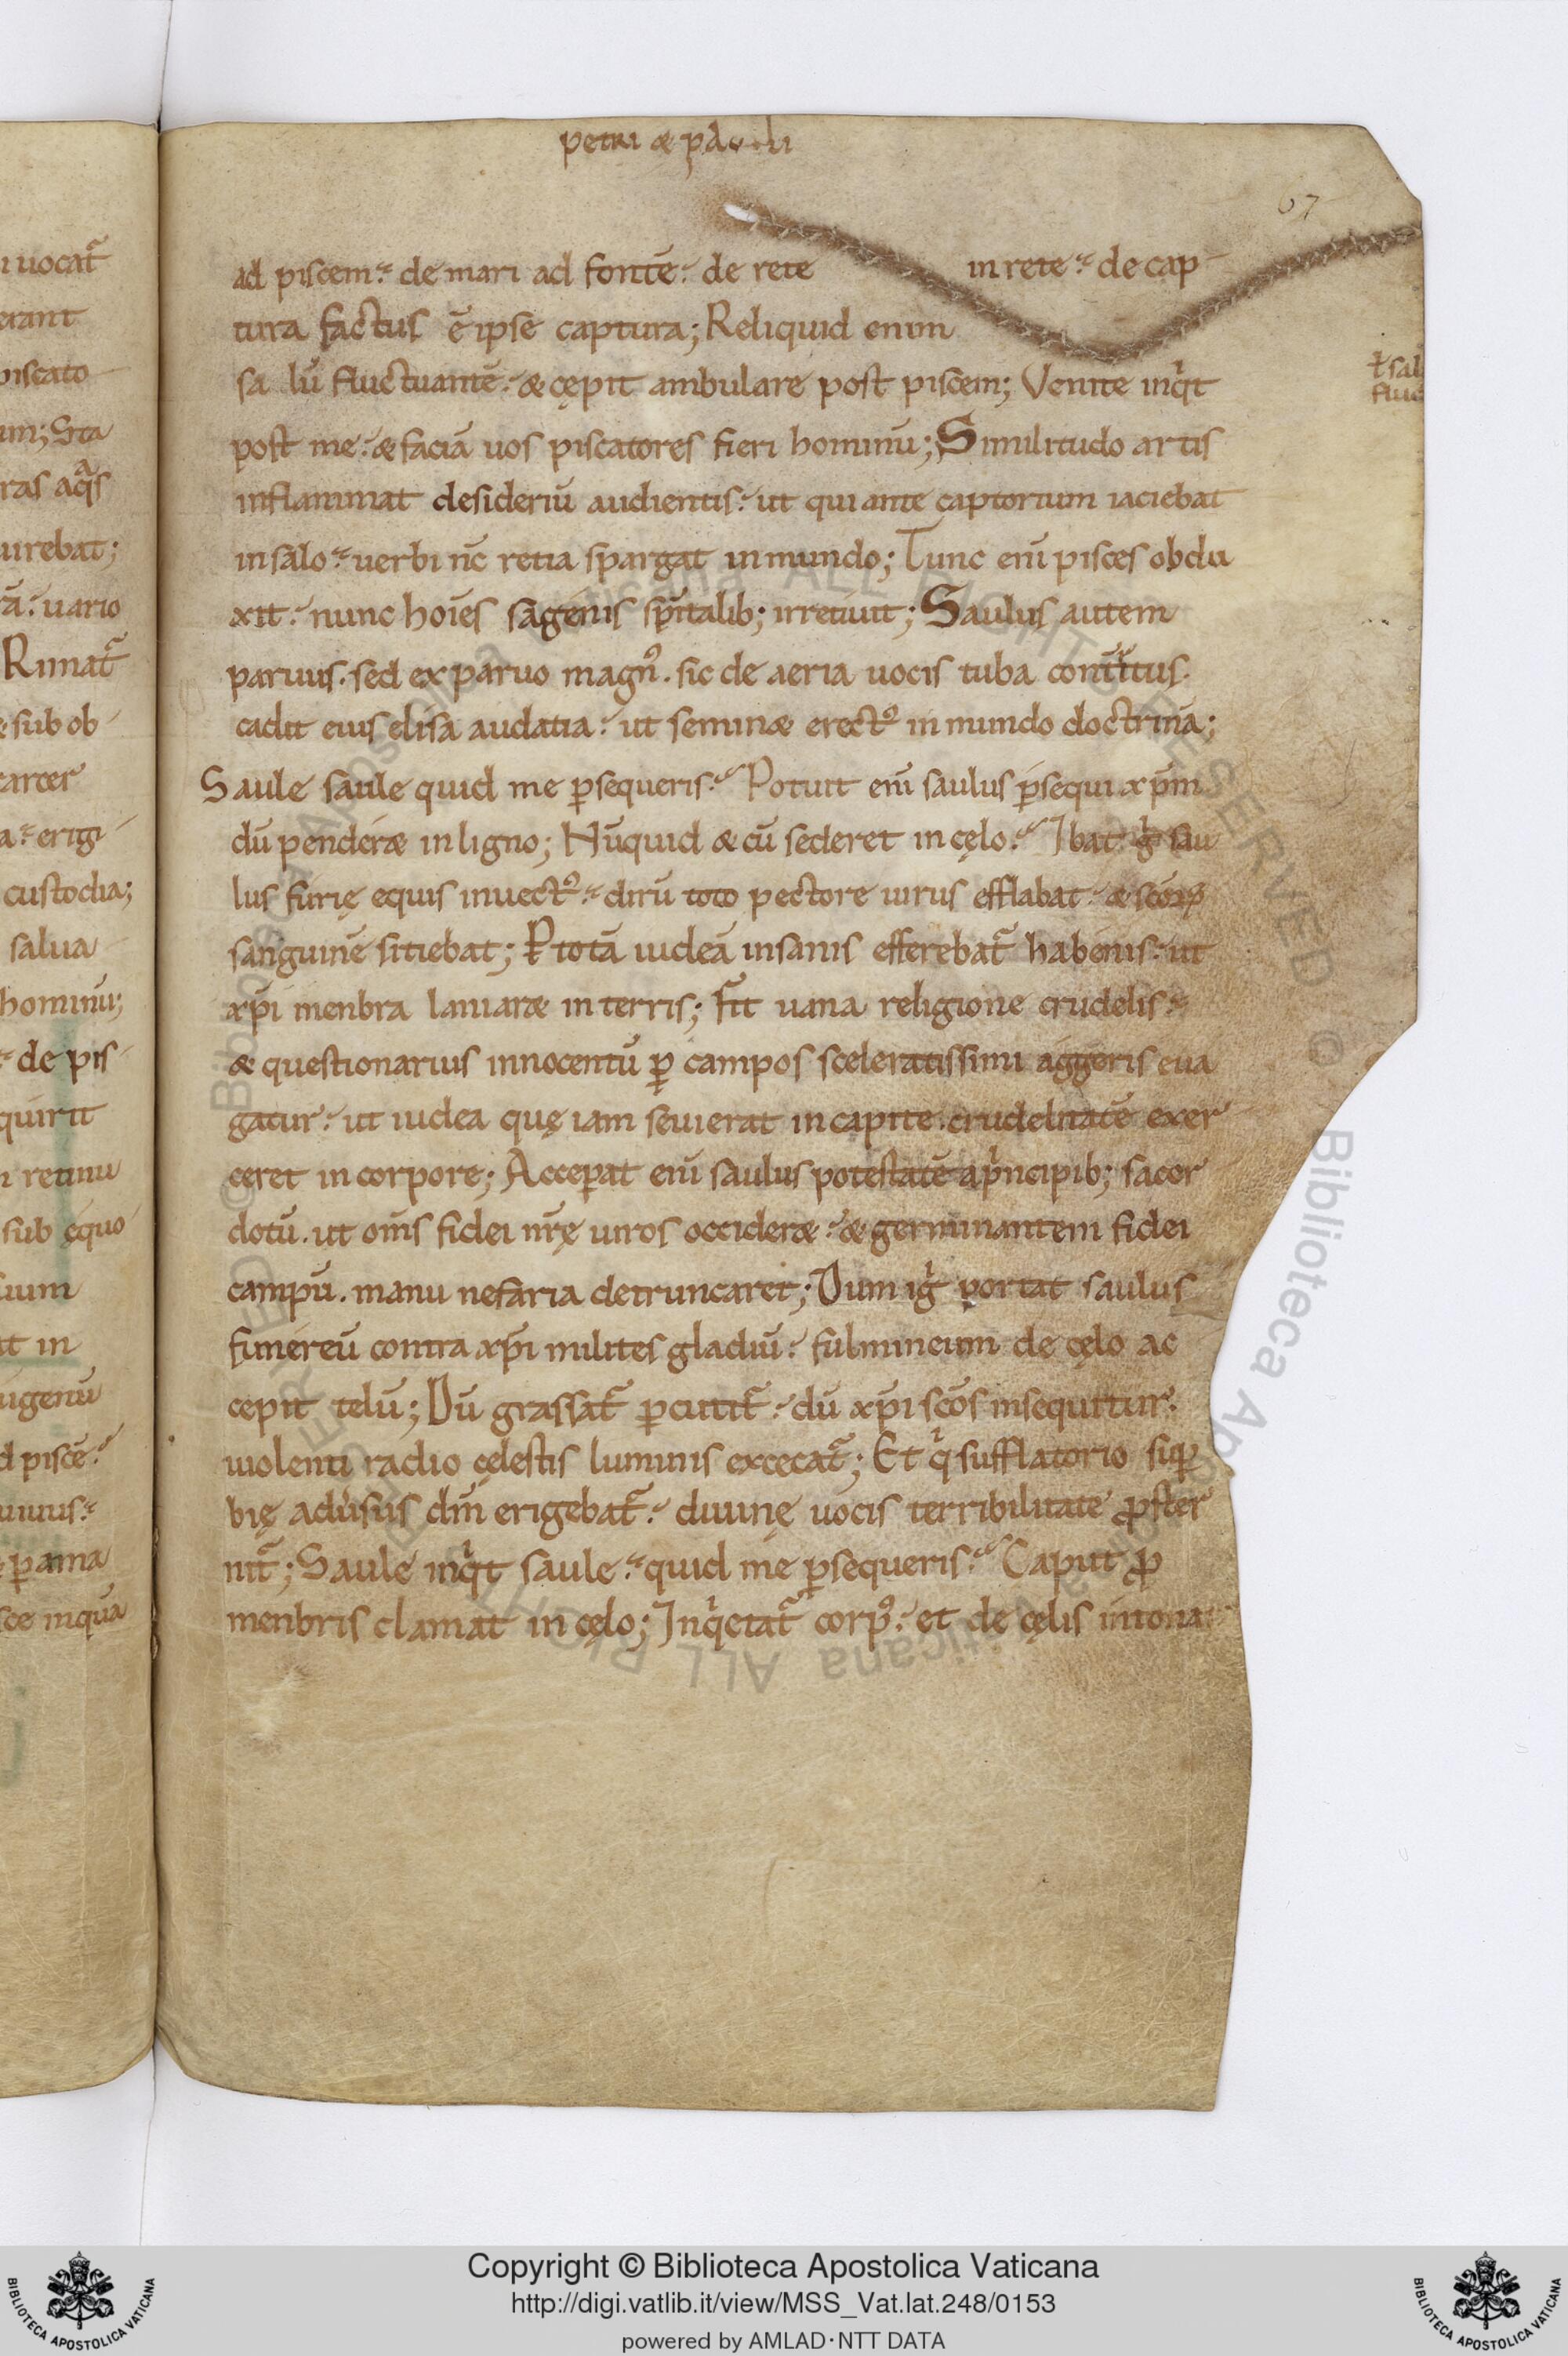 petri & pauli
67
ad piscem. de mari ad fontē. de rete in rete. de cap
tura factus ē ipse captura; Reliquid enim
sa lū fluctuantē. & cępit ambulare post piscem; Venite inqͥt
post me. & faciā uos piscatores fieri hominū; Similitudo artis
inflammat desideriū audientis. ut qui ante captorium iaciebat
in salo. uerbi nc̄ retia spargat in mundo; Tunc eni̅ pisces obdu
xit. nunc hoīes sagenis sp̄italib; irretiuit; Saulus autem
paruus. sed ex paruo magnꝰ. sic de aeria uocis tuba contͥitus.
cadit eius elisa audatia. ut semin& erectꝰ in mundo doctrinā;
Saule saule quid me ꝑsequeris. Potuit eni̅ saulus ꝑsequi xp̄m
dū pender& in ligno; Nūquid & cū sederet in cęlo. Ibat gͥ sau
lus furię equis inuectꝰ. dirū toto pectore uirus efflabat. & sc̄oꝝ
sanguinē sitiebat; P totā iudeā insanis efferebat̄ habenis. ut
xp̄i menbra laniar& in terris; Fit uana religione crudelis.
& questionarius innocentū ꝑ campos sceleratissimi aggeris eua
gatur. ut iudea quę iam seuierat in capite. crudelitatē exer
ceret in corpore; Acceꝑat eni̅ saulus potestatē a pͥncipib; sacer
dotū. ut om̄s fidei nr̄ę uiros occider&. & germinantem fidei
campū. manu nefaria detruncaret; Dum igͥ portat saulus
funereū contra xp̄i milites gladiū. fulmineum de cęlo ac
cepit telū; Dū grassat̄ ꝑcutit̄. dū xp̄i sc̄os insequitur.
uiolenti radio cęlestis luminis excecat̄; Et qͥ sufflatorio suꝑ
bię adu̓sus dm̄ erigebat̄. diuinę uocis terribilitate ꝓster
nit̄; Saule inqͥt saule. quid me ꝑsequeris. Caput ꝓ
menbris clamat in cęlo; Inqͥetat̄ corpꝰ. et de cęlis intona
Copyright © Biblioteca Apostolica Vaticana
http://digi.vatlib.it/view/MSS_Vat.lat.248/0153
powered by AMLAD·NTT DATA
BIBLIOTECA APOSTOLICA VATICANA
BIBLIOTECA APOSTOLICA VATICANA